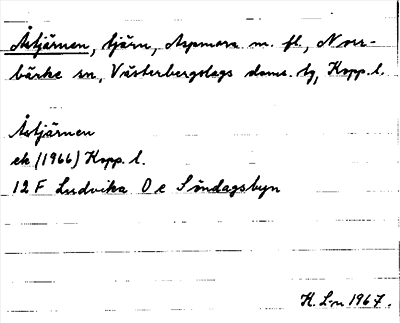 Åstjärnen, tjärn, Aspmora m. fl., Norr-
bärke sn, Västerbergslags doms. tg, Kopp. l.
Åstjärnen
ek (1966) Kopp. l.
12 F Ludvika 0 e Söndagsbyn
H. L-n 1967.